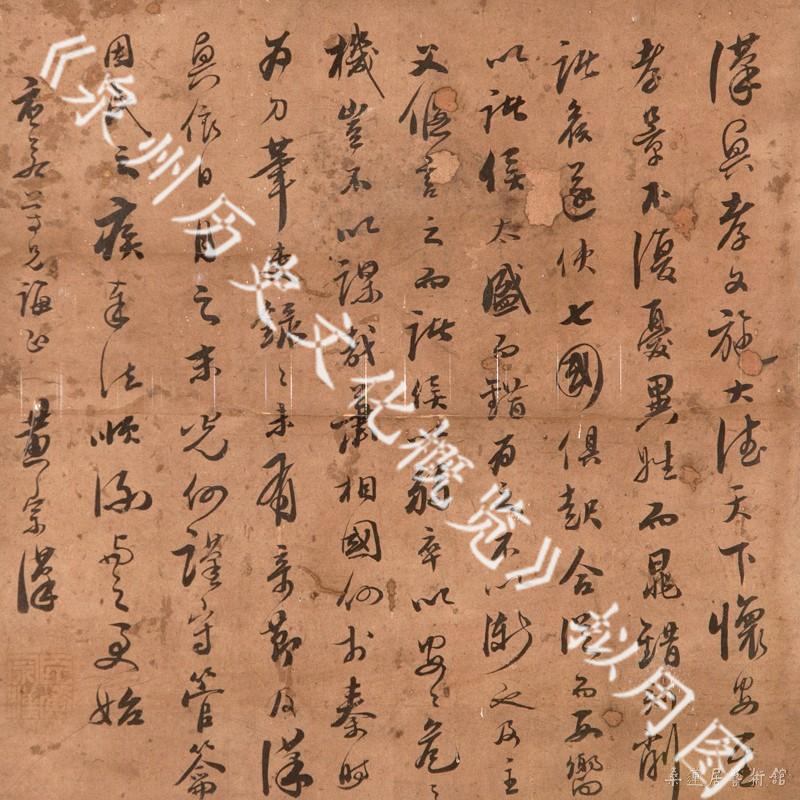 漢興孝文施大德天下懷安至
孝景不復憂異姓而晁錯刻削
諸侯遂使七國俱起合從而西鄉
以諸侯太盛而錯為之不以漸也及主
父偃言之而諸侯以弱卒以安〻危之
機豈不以謀哉蕭相國何於秦時
為刀筆吏錄〻未有奇節及漢
興依日月之末光何謹守管籥
因民之疾奉法順流與之更始
尊兄 正 黃宗漢
《泉州历史文化概览》拟用图
桑蓮居藝術館